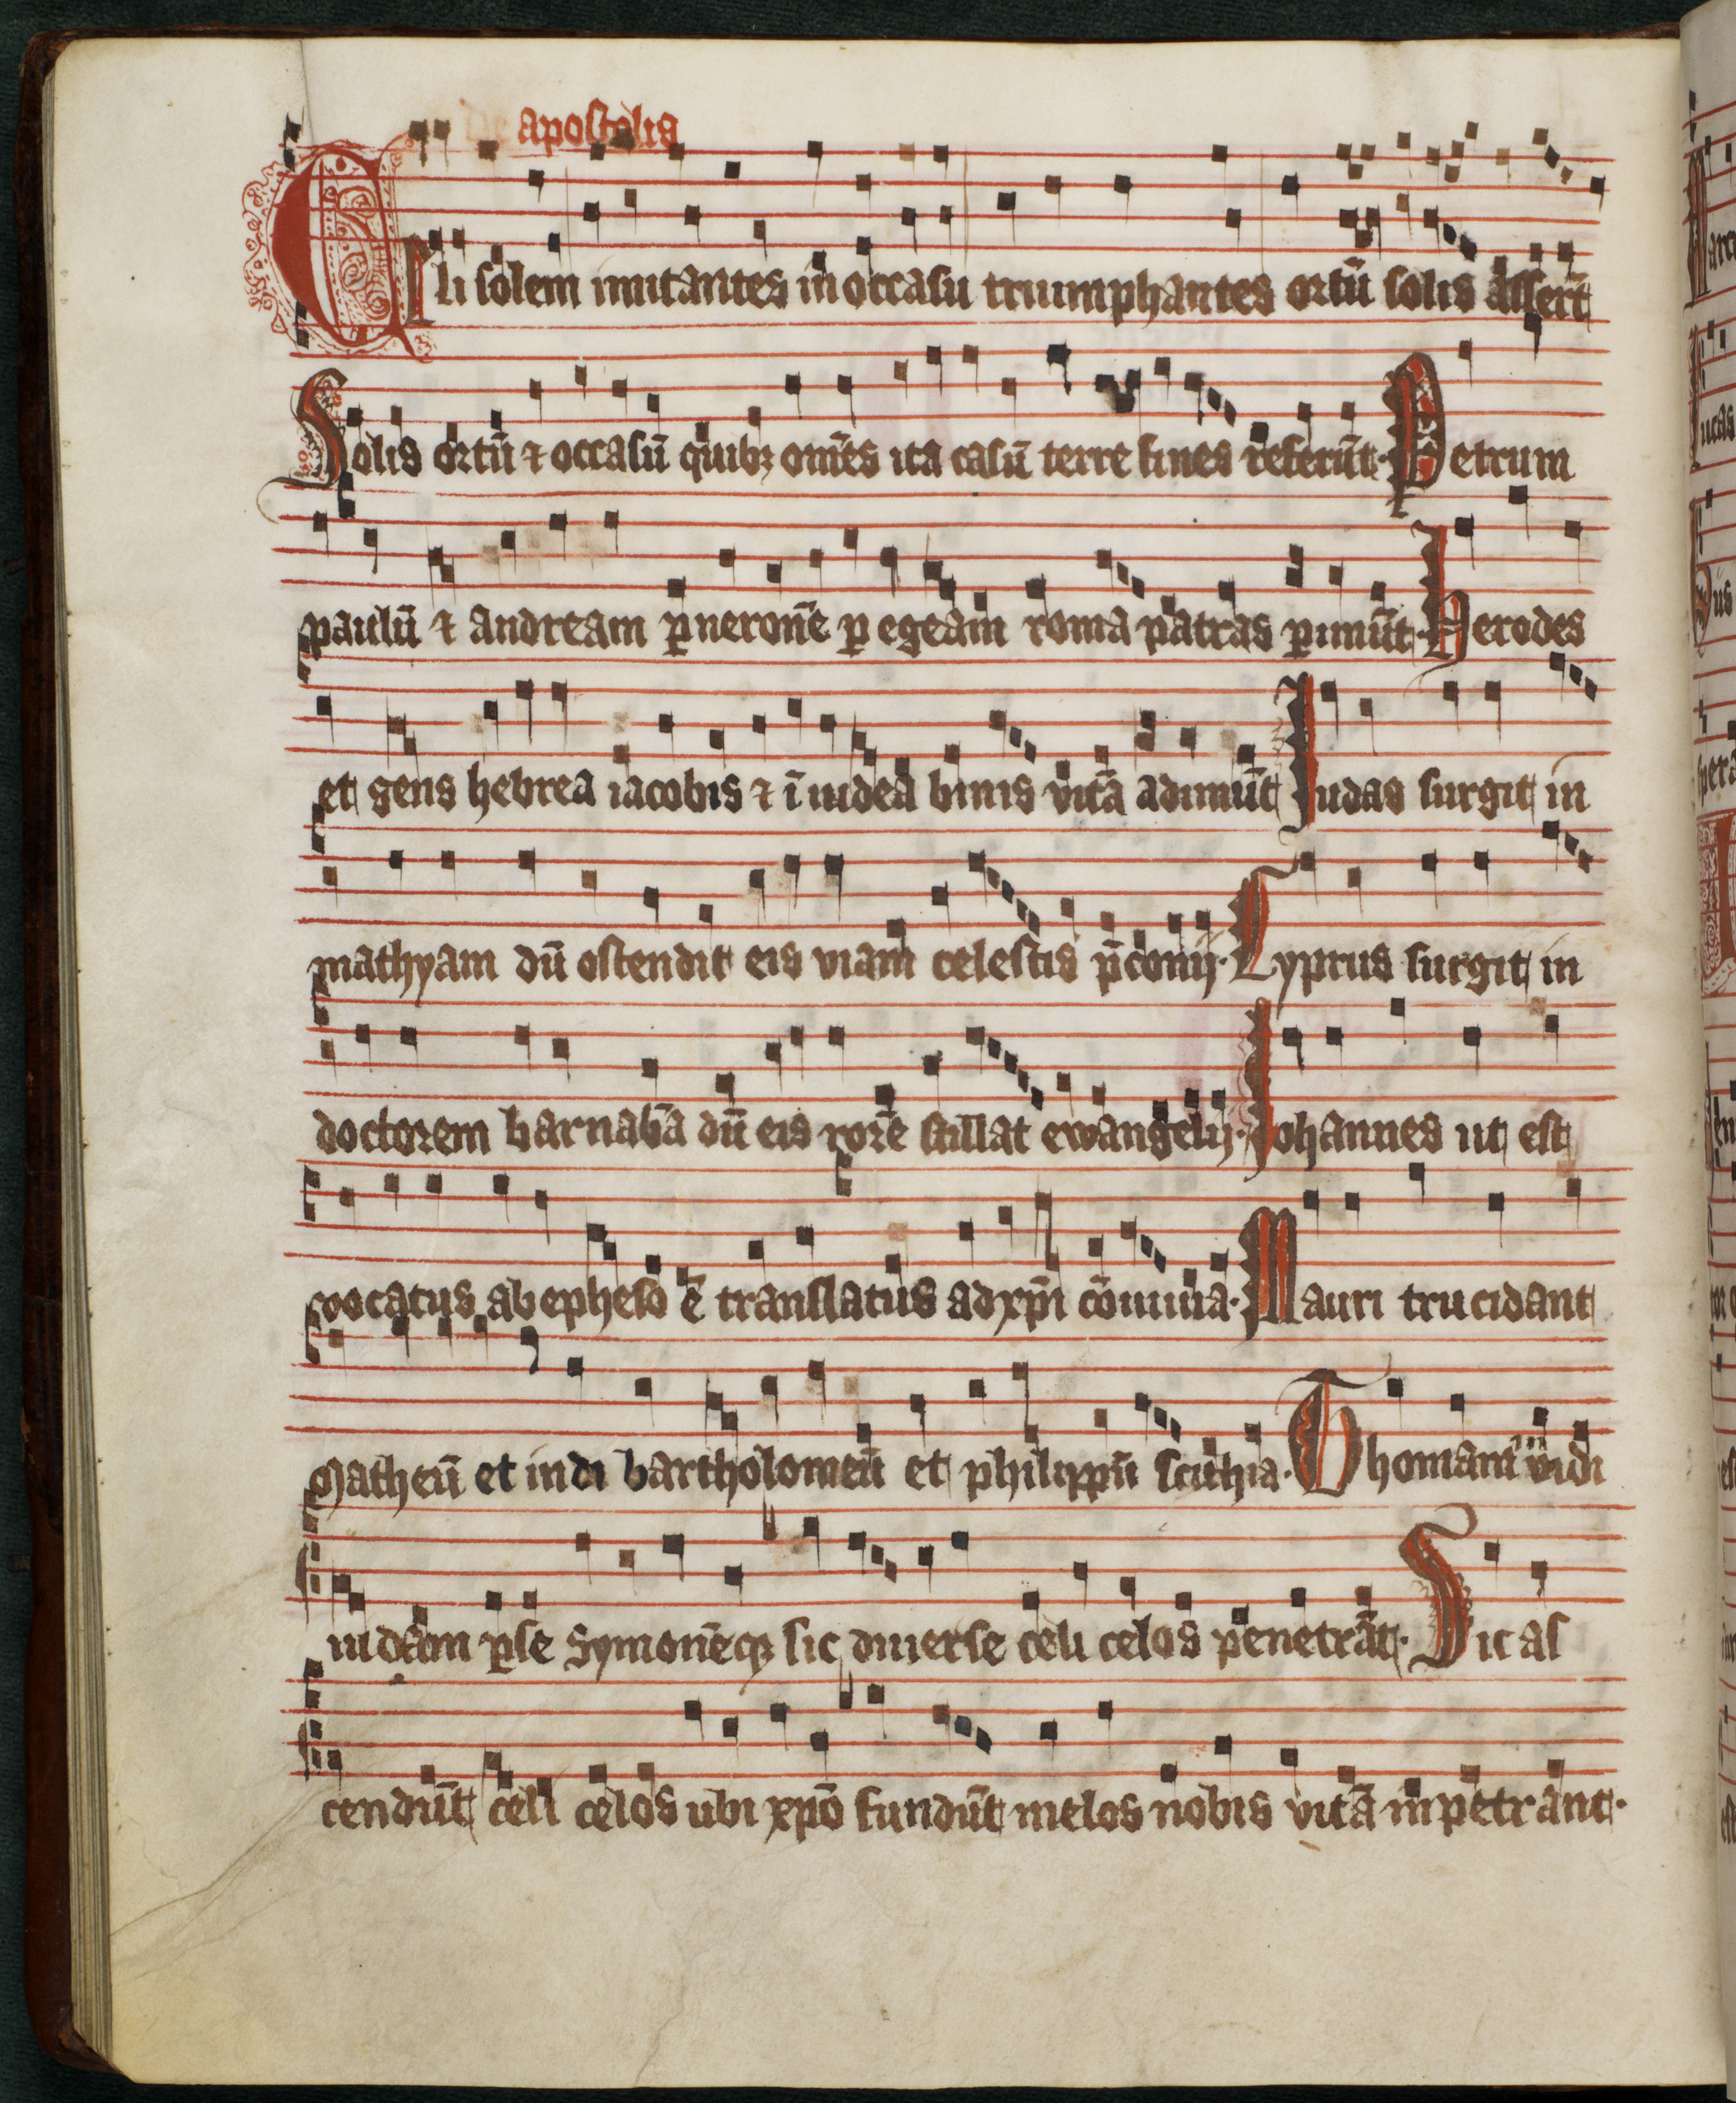 De apostolis
Celi solem imitantes in occasu triumphantes ortū solis asserūt
Solis ortū ⁊ occasū quibꝫ om̄es ita casū terre fines referūt· Petrum
paulū ⁊ andream ꝑ neronē ꝑ egeam roma patras ꝑimūt· Herodes
et gens hebrea iacobis ⁊ ī iudea binis vitā adimūt Iudas surgit in
mathyam dū ostendit eis viam celestis p̄conij· Cyprus surgit in
doctorem barnabā dū eis rorē stillat ewangelij· Iohannes ut est
vocatus ab epheso ē translatus ad xp̄m cōiuuia· Mauri trucidant
Matheū et indi bartholomeū et philippū scithia· Thomam indi
iudam ꝑse Symonēqꝫ sic diuerse celi celos penetrāt· Sic as
cendūt celi celos ubi xp̄o fundūt melos nobis vitā inpetrant·